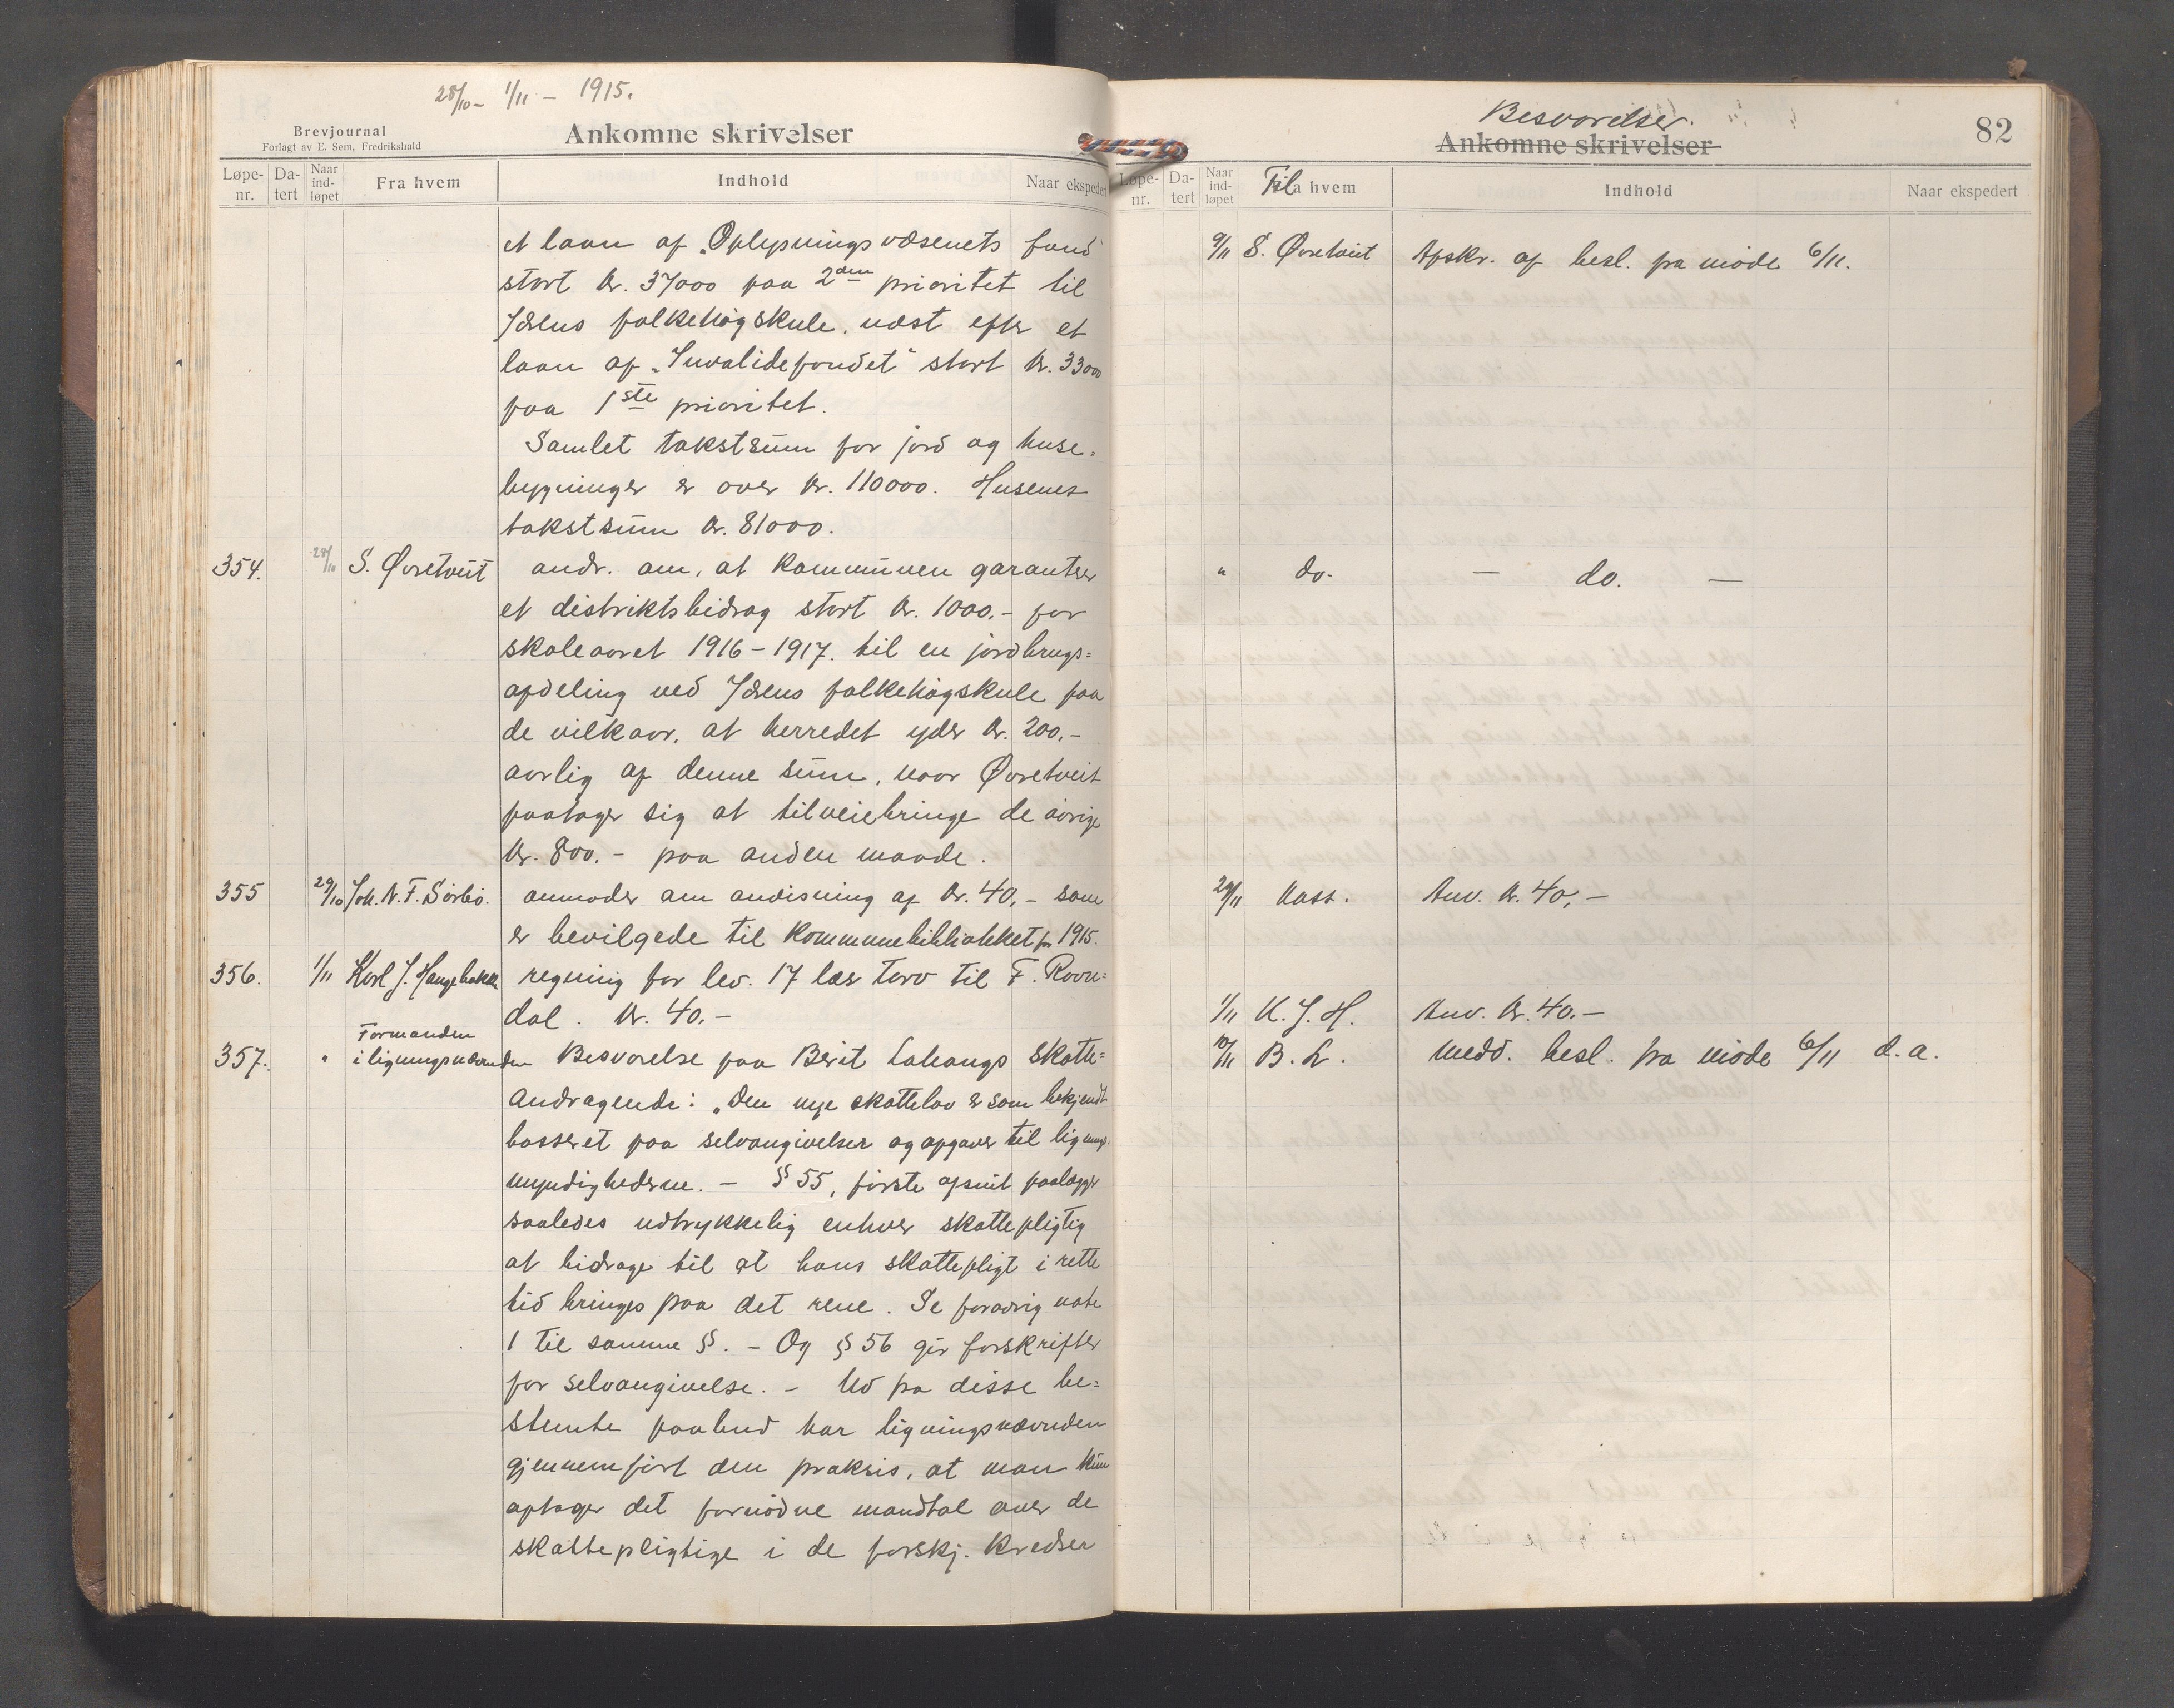 28/10 - 1/11 - 1915.
Brevjournal
Forlagt av E. Sem, Fredrikshald
Ankomne skrivelser
Løpe-nr. Da-tert Naar ind-løpet Fra hvem Indhold Naar ekspedert
et laan af „Oplysningsvæsenets fond
stort kr. 37000 paa 2den prioritet til
Jærens folkehøgskule, næst efter et
laan af „Invalidefondet" stort kr. 33000
paa 1ste prioritet.
Samlet takstsum for jord og huse=
bygninger er over kr. 110000. Husenes
takstsum kr. 81000.
354. 28/10 S. Øvretveit andr. om, at kommunen garanterer
et distriktsbidrag stort kr. 1000.- for
skoleaaret 1916-1917. til en jordbrugs=
afdeling ved Jærens folkehøgskule paa
de vilkaar, at herredet yder kr. 200.-
aarlig af denne sum, naar Øvretveit
paatager sig at tilveiebringe de øvrige
kr. 800.- paa anden maade.
355 29/10 Joh. N. F. Sørbø. anmoder om anvisning af kr. 40,- som
er bevilgede til kommunebiblioteket for 1915.
356. 1/11 Karl J. Haugebakke regning for lev. 17 læs torv til F. Ravn=
dal. kr. 40.-
Formanden
357. " i ligningsnævnden Besvarelse paa Berit Laleangs skatte=
andragende: „Den nye skattelov er som bekjendt
basseret paa selvangivelser og opgaver til lignings
myndighederne. - § 55, første afsnit paalægger
saaledes udtrykkelig enhver skattepligtig
at bidrage til at hans skattepligt i rette
tid bringes paa det rene. Se forøvrig note
1 til samme §. - Og § 56 gir forskrifter
for selvangivelse. - Ud fra disse be=
stemte paabud har ligningsnævnden
gjennemført den praksis, at man kun
optager det fornødne mandtal over de
skattepligtige i de forskj. kredser
Besvarelser.
Ankomne skrivelser
82
Løpe-nr. Da-tert Naar ind-løpet Til hvem Indhold Naar ekspedert
9/11 S. Øvretveit Afskr. af besl. fra møde 6/11.
" do. - do. -
29/11 Kass. Anv. kr. 40,-
1/11 K. J. H. Anv. kr. 40.-
10/11 B. L. Medd. besl. fra møde 6/11 d.a.